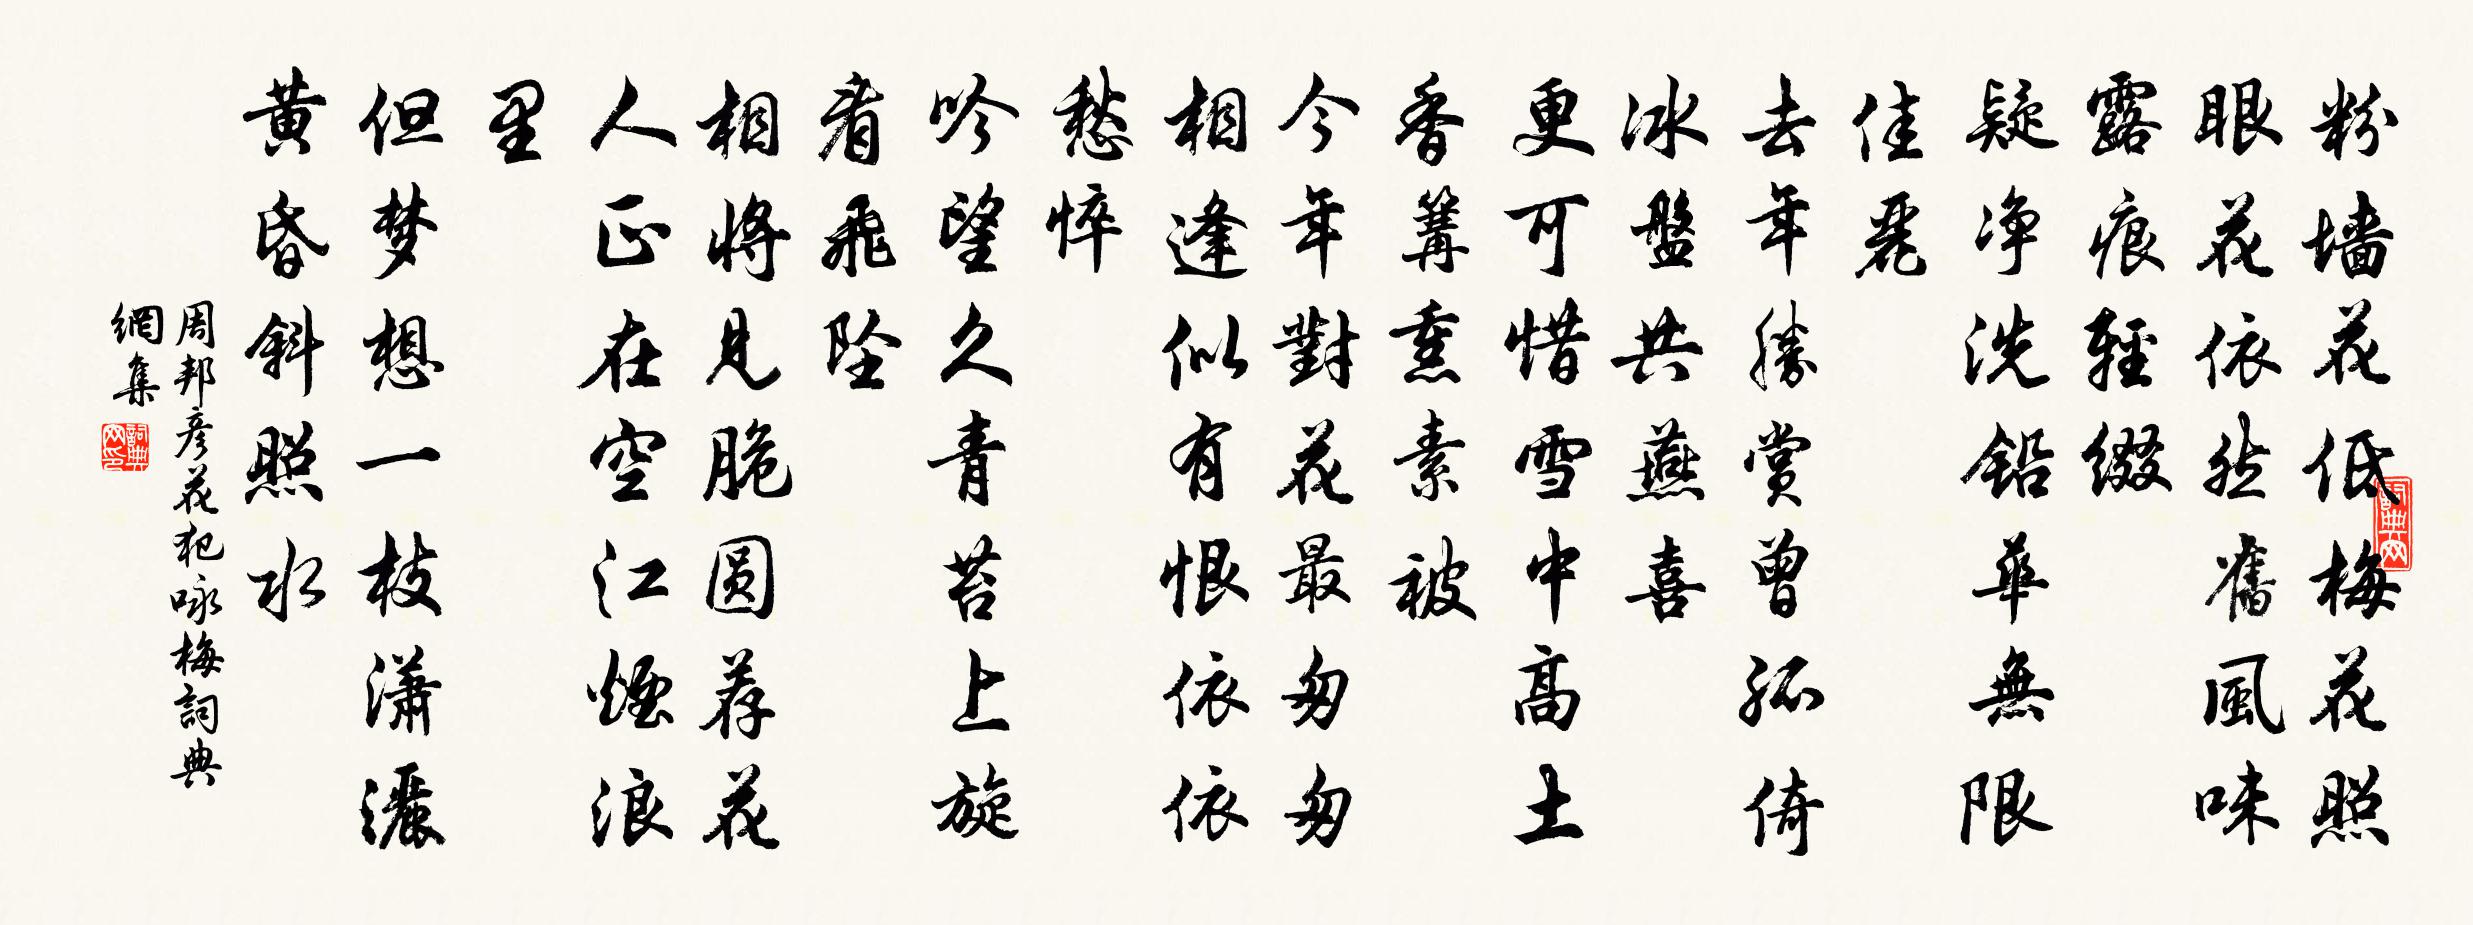 粉墙花低梅花照
眼花依然舊風味
露痕輕缀
疑净洗铅華無限
佳麗
去年勝赏曾孤倚
冰盤共燕喜
更可惜雪中高士
香篝熏素被
今年對花最匆匆
相逢似有恨依依
愁悴
吟望久青苔上旋
看飛坠
相將见脆圆荐花
人正在空江煙浪
里
但梦想一枝潇灑
黄昏斜照水
周邦彦花犯咏梅詞典
網集
詞典网